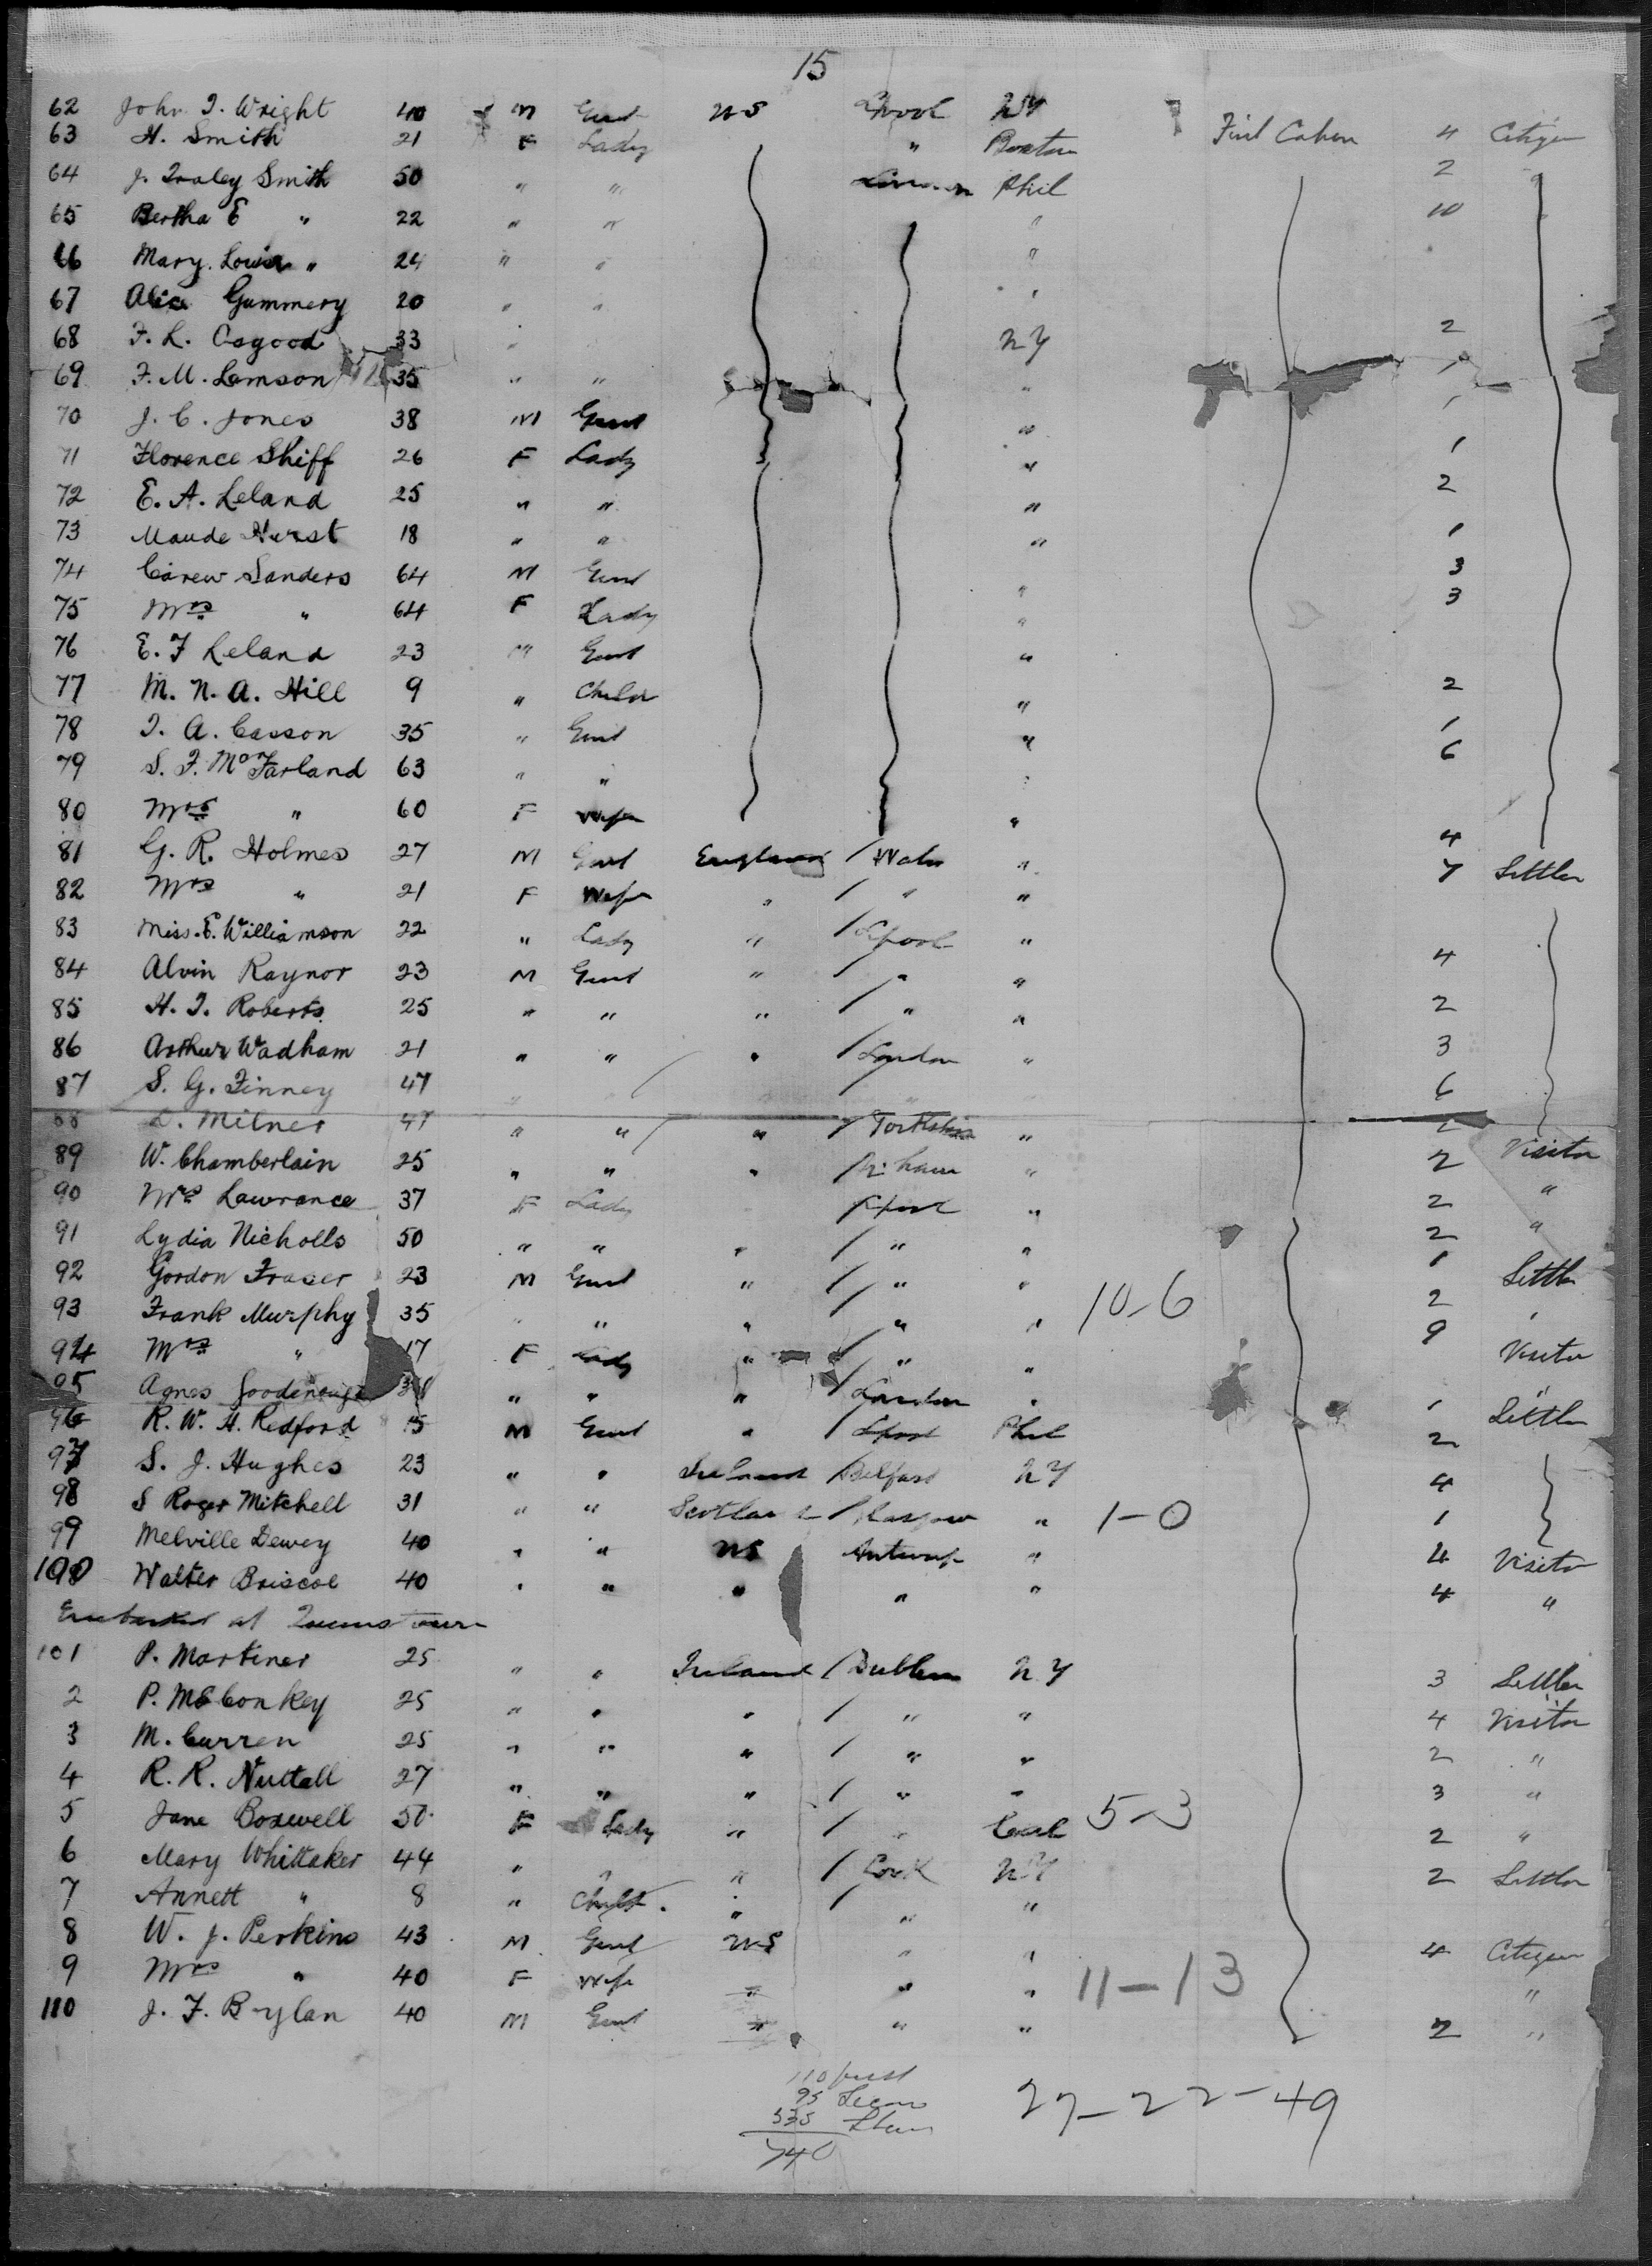 15
62 John T. Wright 40 M Gent U S Lpool NY First Cabin 4 Citizen
63 H. Smith 21 F Lady " Boston 2
64 J. Smith 50 " " Phil 10
65 Bertha E " 22 " " "
66 Mary Louisa " 24 " " "
67 Alice Gummery 20 " " "
68 F. L. Osgood 33 " NY 2
69 F. M. Lamson 35 " " " 1
70 J. C. Jones 38 M Gent " 1
71 Florence Shiff 26 F Lady " 1
72 E. A. Leland 25 " " " 2
73 Maude Hurst 18 " " " 1
74 Carew Sanders 64 M Gent " 3
75 Mrs " 64 F Lady " 3
76 E. F Leland 23 M Gent "
77 M. N. A. Hill 9 " Child " 2
78 T. A. Casson 35 " Gent " 1
79 S. F. McFarland 63 " " " 6
80 Mrs " 60 F Wife "
81 G. R. Holmes 27 M Gent England / Wales " 4
82 Mrs " 21 F Wife " / " " 7 Settler
83 Miss. E. Williamson 22 " Lady " / Lpool "
84 Alvin Raynor 23 M Gent " / " " 4
85 H. T. Roberts 25 " " " / " " 2
86 Arthur Wadham 21 " " " / London " 3
87 S. G. Finney 47 " / " 6
88 D. Milner 47 " " " / Yorkshire " 2
89 W. Chamberlain 25 " " " / " 2 Visitor
90 Mrs Lawrance 37 F Lady / Lpool " 2 "
91 Lydia Nicholls 50 " " " / " " 2 "
92 Gordon Fraser 23 M Gent " / " " 1 Settler
10-6
93 Frank Murphy 35 " " " / " " 2 "
94 Mrs " 17 F Lady " / " " 9 Visitor
95 Agnes Goodenough " " " / London " "
96 R. W. H. Redford 15 M Gent " / Lpool Phil 1 Settler
97 S. J. Hughes 23 " " Ireland / Belfast NY 2
98 S Roger Mitchell 31 " " Scotland / Glasgow " 1-0 4
99 Melville Dewey 40 " " US Antwerp " 4 Visitor
100 Walter Briscoe 40 " " " " " 4 "
Embarked at Queenstown
101 P. Martiner 25 " " Ireland / Dublin NY 3 Settler
2 P. McConkey 25 " " " / " " 4 Visitor
3 M. Curren 25 " " " / " " 2 "
4 R. R. Nuttall 27 " " " / " " 3 "
5 Jane Boswell 50 F Lady " / " 5-3 2 "
6 Mary Whittaker 44 " " " / Cork NY 2 Settler
7 Annett " 8 " Child " / " "
8 W. J. Perkins 43 M Gent US " " 4 Citizen
9 Mrs " 40 F Wife " " " 11-13 "
110 J. F. Boylan 40 M Gent " " " 2 "
110 first
95 Secon
535 Steer
740
27-22-49